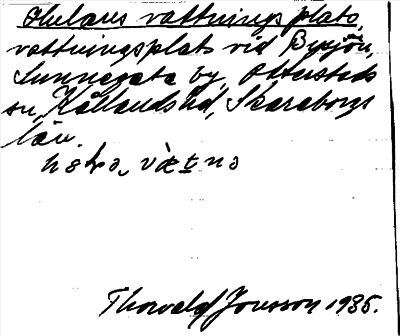 vattningsplats,
vattningsplats vid Bysjön,
Sunnegata by, Otterstads
sn, Kållands hd, Skaraborgs
län.
Thorvald Jonsson 1985.